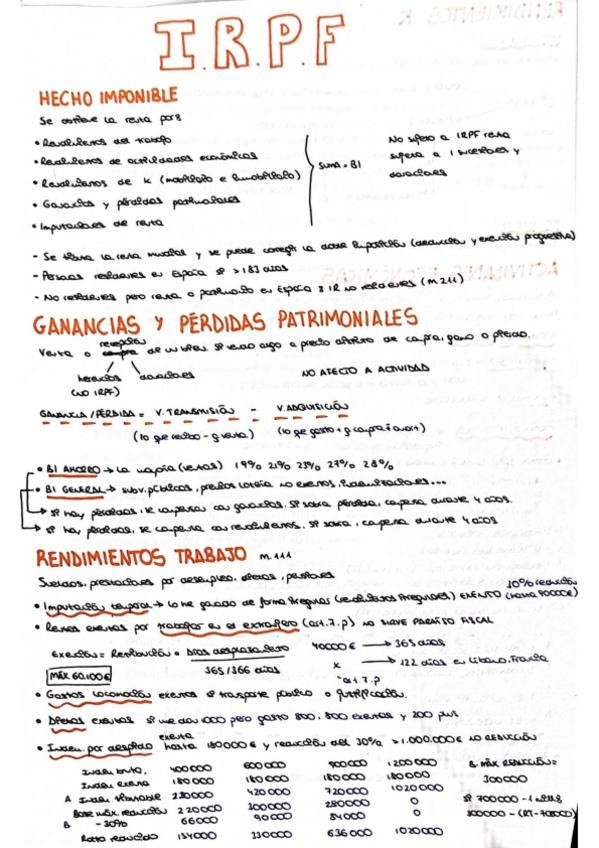 I.R.P.F
HECHO IMPONIBLE
Se obtiene la renta por:
• Rendimientos del trabajo
• Rendimientos de actividades económicas
• Rendimientos de k (mobiliario e inmobiliario)
• Ganancias y pérdidas patrimoniales
• Imputaciones de renta
SUMA = BI
No sujeto a IRPF renta
sujeta a I sucesiones y
donaciones
- Se grava la renta mundial y se puede corregir la doble imposición (deducción y exención progresiva)
- Personas residentes en España si > 183 días
- No residentes pero renta o patrimonio en España : IR no residentes (M 211)
GANANCIAS Y PÉRDIDAS PATRIMONIALES
recepción
Venta o compra de un bien. Si vendo algo a precio diferente de compra, gano o pierdo.
herencias donaciones
(NO IRPF)
NO AFECTO A ACTIVIDAD
GANANCIA / PÉRDIDA = V. TRANSMISIÓN - V. ADQUISICIÓN
(lo que recibo - g venta) (lo que gasto + g compra + )
• BI AHORRO → La mayoría (ventas) 19% 21% 23% 27% 28%
• BI GENERAL → subv. públicas, premios lotería no exentos, indemnizaciones...
→ si hay pérdidas, se compensa con ganancias. Si sobra pérdida, compensa durante 4 años.
→ si hay pérdidas, se compensa con rendimientos. Si sobra, compensa durante 4 años
RENDIMIENTOS TRABAJO M. 111
Sueldos, prestaciones por desempleo, dietas, pensiones
• Imputación temporal → lo he ganado de forma irregular (rendimientos irregulares) EXENTO
30% reducción
(hasta 300000€)
• Rentas exentas por trabajos en el extranjero (art. 7. p) NO SIRVE PARAÍSO FISCAL
Exención = Retribución · Días desplazamiento
365/366 días
MÁX 60.100€
40000€ → 365 días
x → 122 días en Líbano, Francia
art. 7. p
• Gastos locomoción exentos si transporte público o justificación.
• Dietas exentas si me dan 1000 pero gasto 800, 800 exentas y 200 plus.
exenta
• Indem. por despido hasta 180000€ y reducción del 30% > 1.000.000€ NO REDUCCIÓN
Indem bruta. 400000 600000 900000 1200000
Indem exenta 180000 180000 180000 180000
A Indem tributable 220000 420000 720000 1020000
Base máx reducción 220000 300000 280000 0
B - 30% 66000 90000 84000 0
Rdto reducido 154000 330000 636000 1020000
B MÁX REDUCCIÓN =
300000
300000 - (RT - 700000)